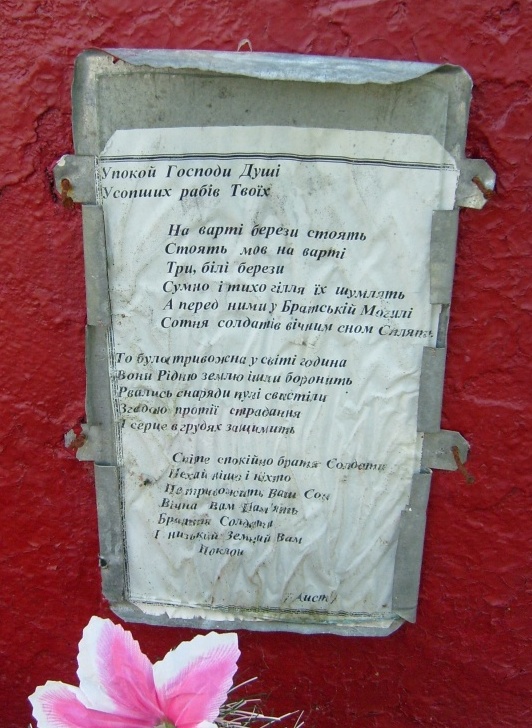 Упокой Господи Душі
Усопших рабів Твоїх
На варті берези стоять
Стоять мов на варті
Три, білі берези
Сумно і тихо гілля їх шумлять
А перед ними у Братській Могилі
Сотня солдатів вічним сном Сплять
То була тривожна у світі година
Вони Рідню землю ішли боронить
Рвались снаряди пулі свистіли
Згадаю протії страдання
І серце в грудях защимить
Спіте спокійно братя Солдати
Нехай ніщо і ніхто
Не тривожать Ваш Сон
Вічна Вам Пам'ять
Братя Солдати
І низький Земний Вам
Поклон
(Аист)